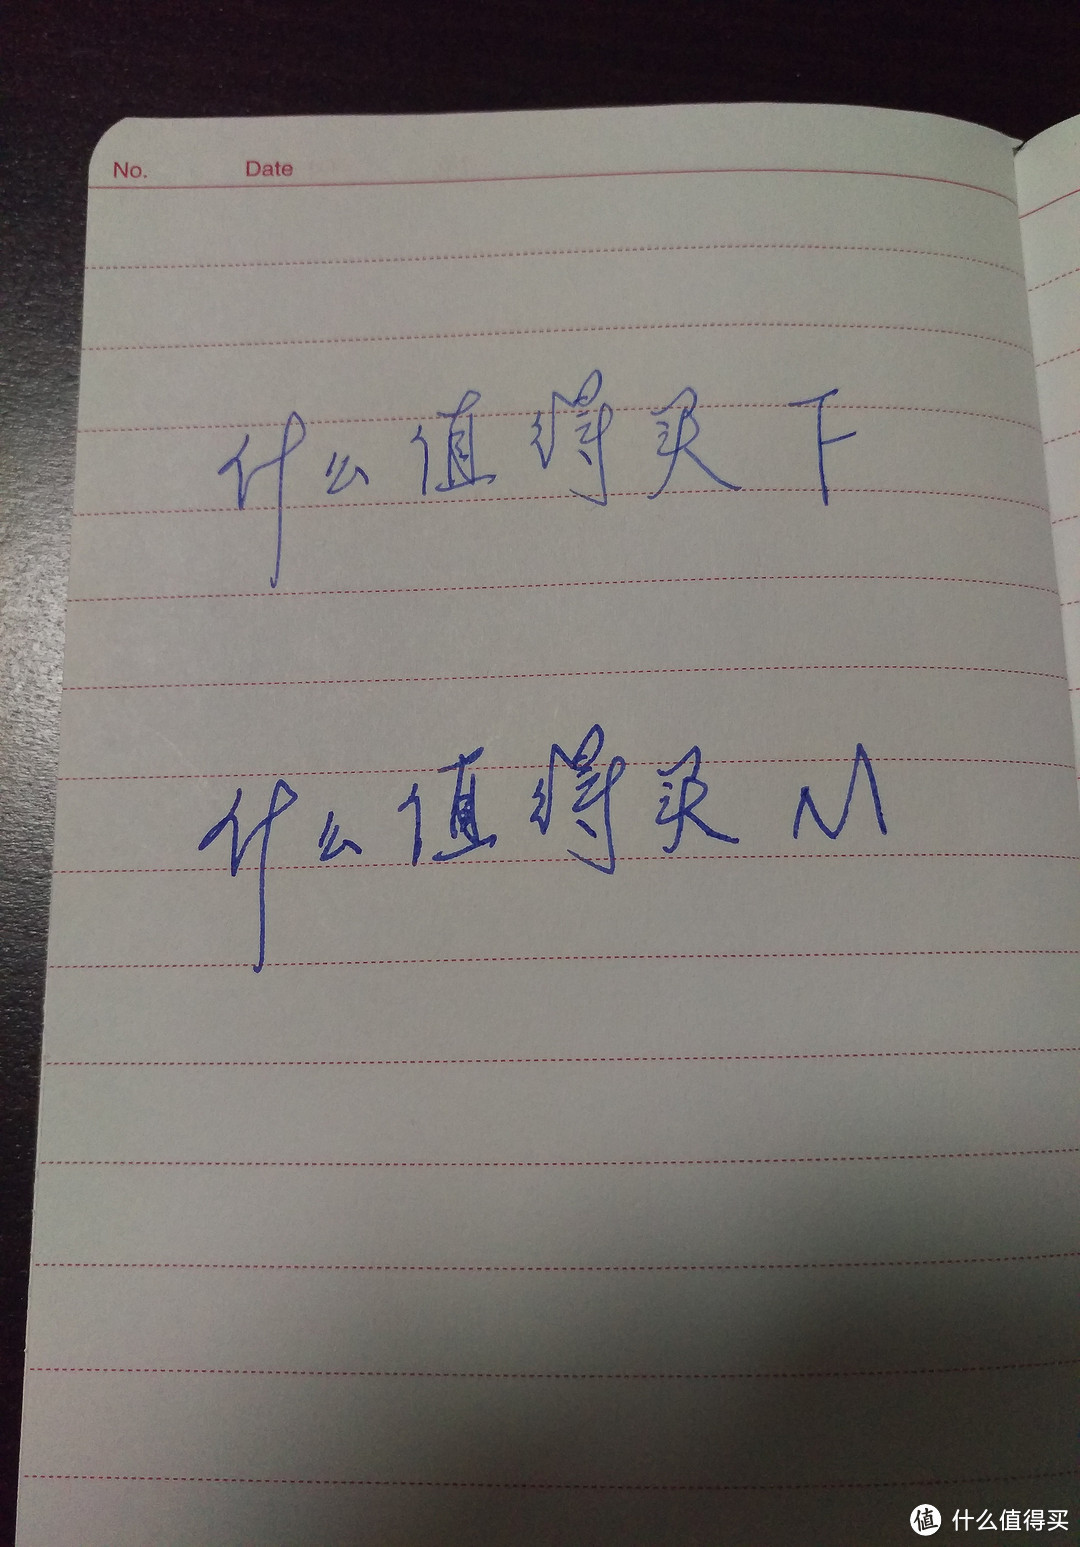 No. Date
什么值得买 F
什么值得买 M
值 什么值得买